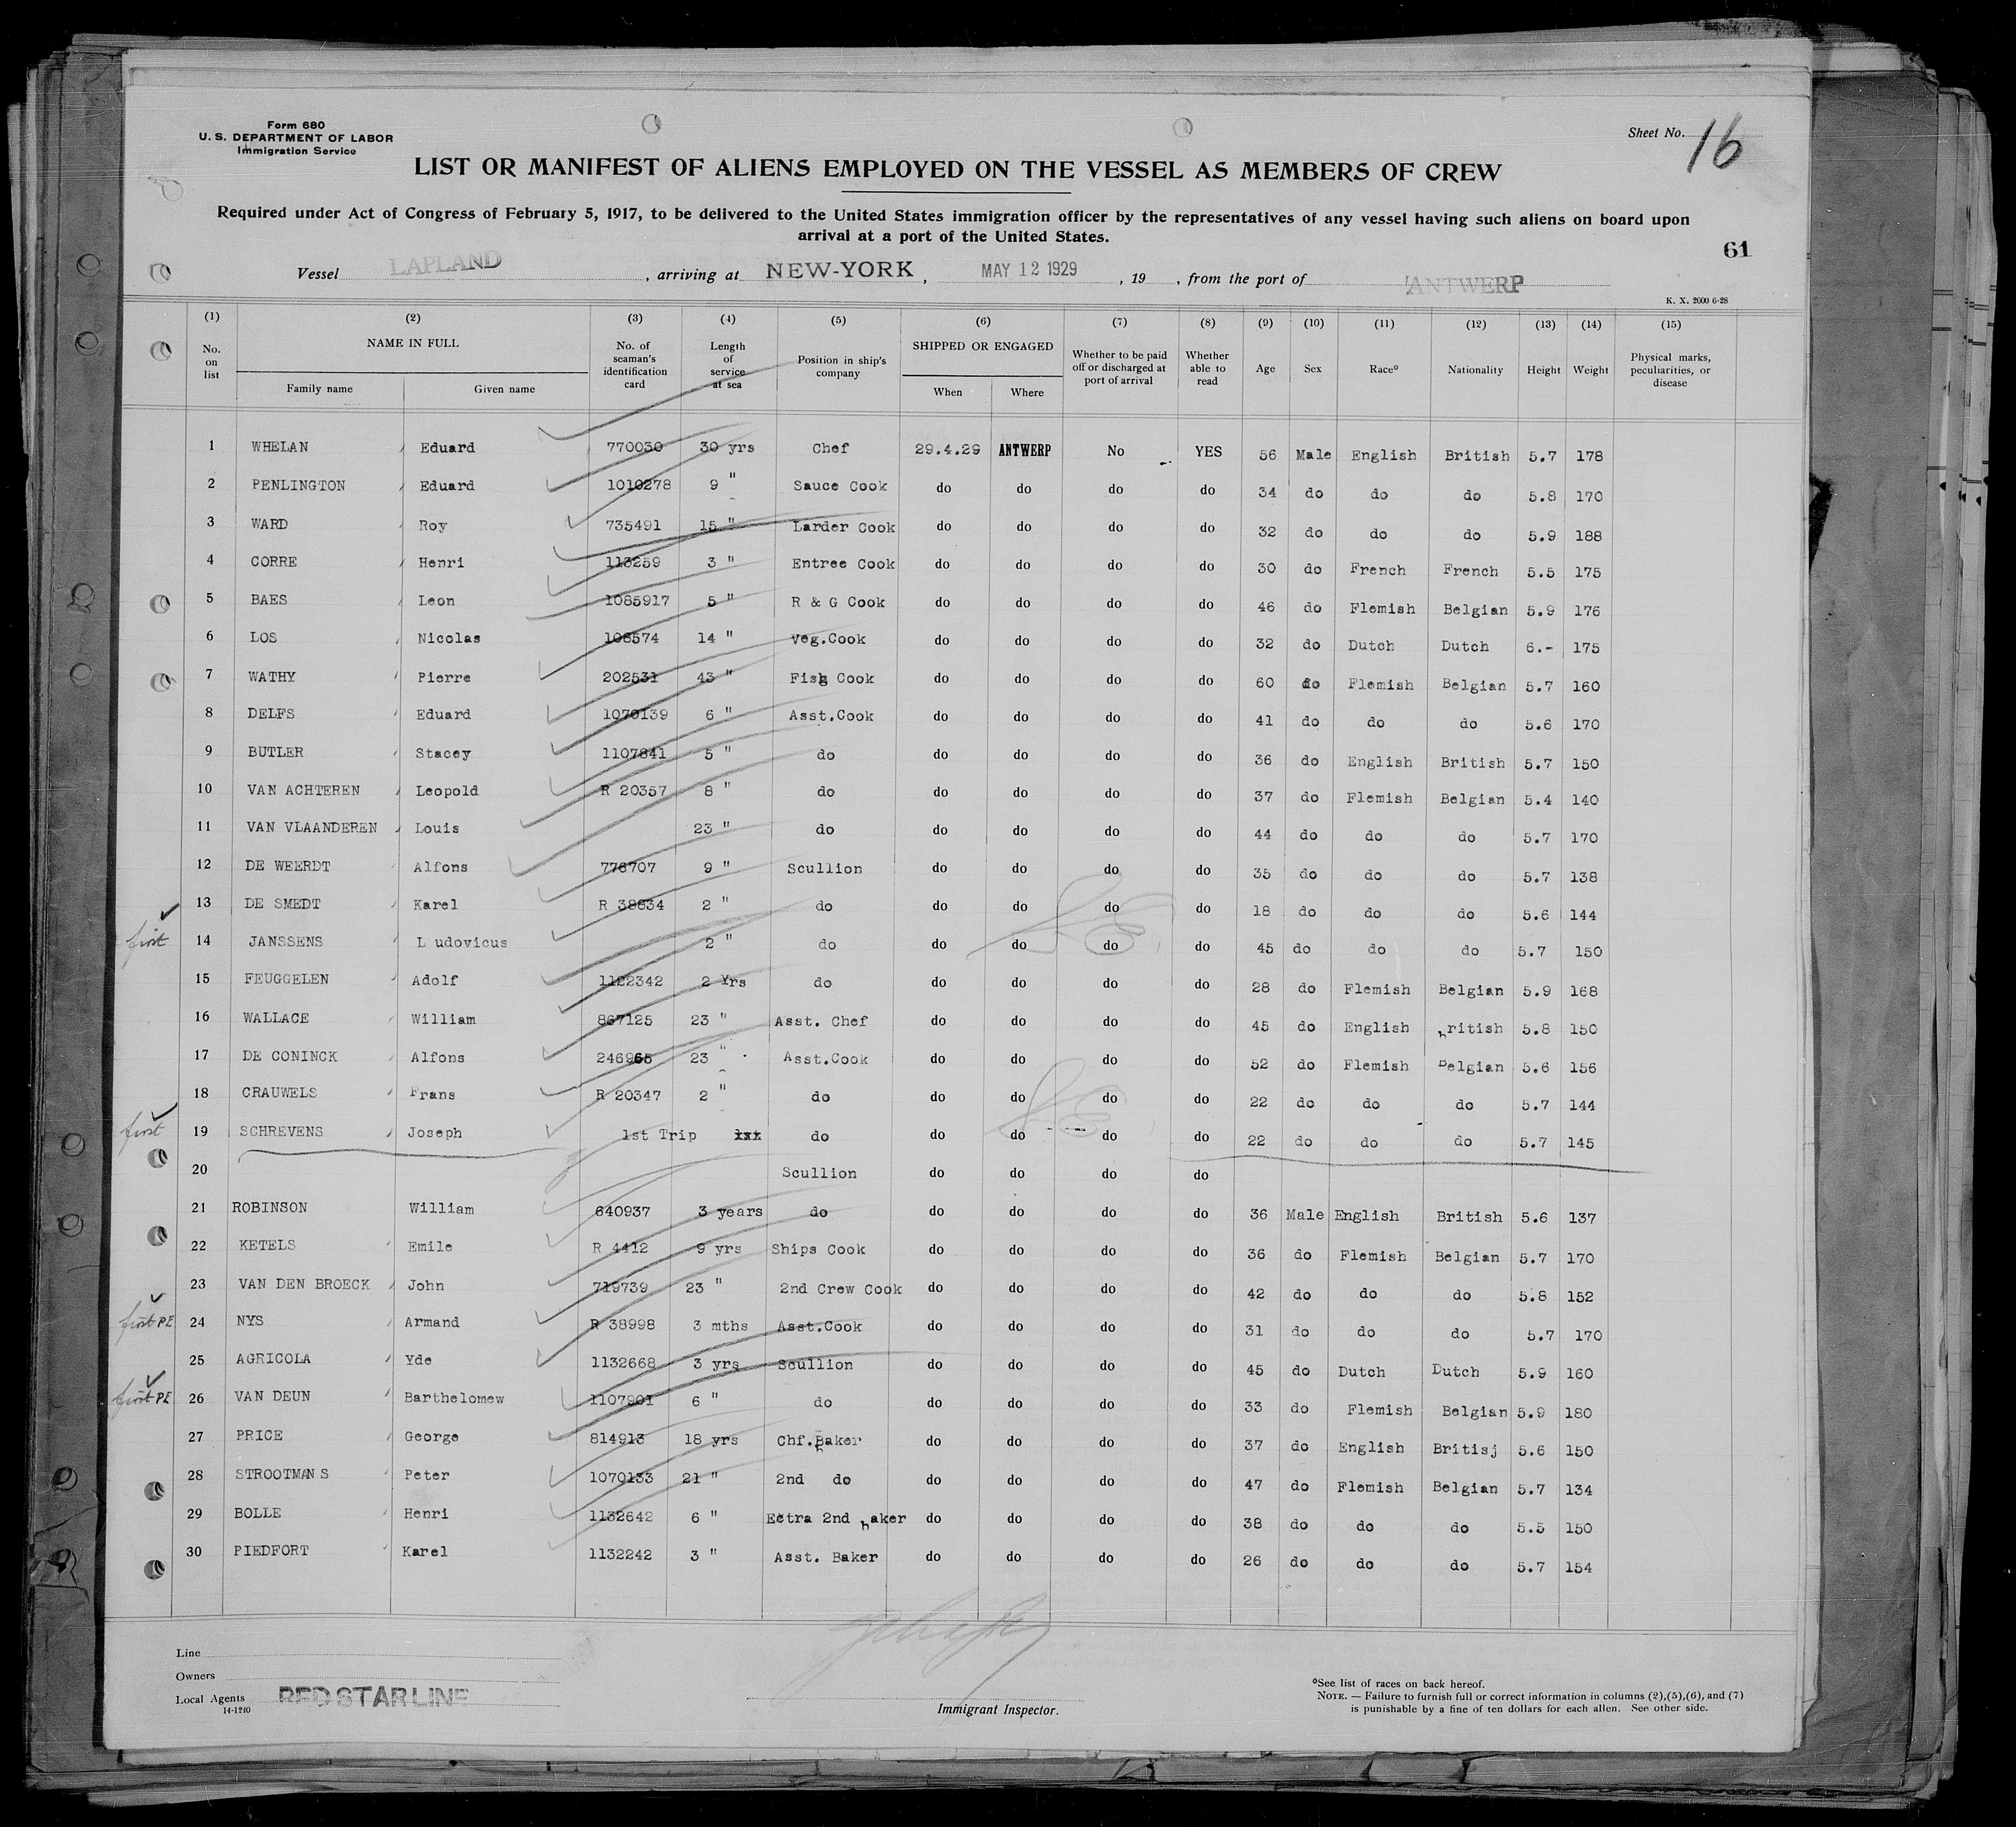 Form 680
U. S. DEPARTMENT OF LABOR
Immigration Service
Sheet No. 16
LIST OR MANIFEST OF ALIENS EMPLOYED ON THE VESSEL AS MEMBERS OF CREW
Required under Act of Congress of February 5, 1917, to be delivered to the United States immigration officer by the representatives of any vessel having such aliens on board upon
arrival at a port of the United States.
61
Vessel LAPLAND, arriving at NEW-YORK, MAY 12 1929, 19 , from the port of ANTWERP
K. X. 2000 6-28
(1) (2) (3) (4) (5) (6) (7) (8) (9) (10) (11) (12) (13) (14) (15)
No. on list NAME IN FULL Family name Given name No. of seaman's identification card Length of service at sea Position in ship's company SHIPPED OR ENGAGED When Where Whether to be paid off or discharged at port of arrival Whether able to read Age Sex Race° Nationality Height Weight Physical marks, peculiarities, or disease
1 WHELAN Eduard 770030 30 yrs Chef 29.4.29 ANTWERP No YES 56 Male English British 5.7 178
2 PENLINGTON Eduard 1010278 9 " Sauce Cook do do do do 34 do do do 5.8 170
3 WARD Roy 735491 15 " Larder Cook do do do do 32 do do do 5.9 188
4 CORRE Henri 113259 3 " Entree Cook do do do do 30 do French French 5.5 175
5 BAES Leon 1085917 5 " R & G Cook do do do do 46 do Flemish Belgian 5.9 176
6 LOS Nicolas 108574 14 " Veg.Cook do do do do 32 do Dutch Dutch 6.- 175
7 WATHY Pierre 202531 43 " Fish Cook do do do do 60 do Flemish Belgian 5.7 160
8 DELFS Eduard 1070139 6 " Asst.Cook do do do do 41 do do do 5.6 170
9 BUTLER Stacey 1107841 5 " do do do do do 36 do English British 5.7 150
10 VAN ACHTEREN Leopold R 20357 8 " do do do do do 37 do Flemish Belgian 5.4 140
11 VAN VLAANDEREN Louis 23 " do do do do do 44 do do do 5.7 170
12 DE WEERDT Alfons 776707 9 " Scullion do do do do 35 do do do 5.7 138
13 DE SMEDT Karel R 38634 2 " do do do do do 18 do do do 5.6 144
first 14 JANSSENS L udovicus 2 " do do do do do 45 do do do 5.7 150
15 FEUGGELEN Adolf 1122342 2 Yrs do do do do do 28 do Flemish Belgian 5.9 168
16 WALLACE William 867125 23 " Asst. Chef do do do do 45 do English British 5.8 150
17 DE CONINCK Alfons 246965 23 " Asst.Cook do do do do 52 do Flemish Belgian 5.6 156
18 CRAUWELS Frans R 20347 2 " do do do do do 22 do do do 5.7 144
first 19 SCHREVENS Joseph 1st Trip xxx do do do do do 22 do do do 5.7 145
20 Scullion do do do do
21 ROBINSON William 640937 3 years do do do do do 36 Male English British 5.6 137
22 KETELS Emile R 4412 9 yrs Ships Cook do do do do 36 do Flemish Belgian 5.7 170
23 VAN DEN BROECK John 719739 23 " 2nd Crew Cook do do do do 42 do do do 5.8 152
first PE 24 NYS Armand R 38998 3 mths Asst.Cook do do do do 31 do do do 5.7 170
25 AGRICOLA Yde 1132668 3 yrs Scullion do do do do 45 do Dutch Dutch 5.9 160
first PE 26 VAN DEUN Barthelomew 1107901 6 " do do do do do 33 do Flemish Belgian 5.9 180
27 PRICE George 814913 18 yrs Chf.Baker do do do do 37 do English Britisj 5.6 150
28 STROOTMANS Peter 1070133 21 " 2nd do do do do do 47 do Flemish Belgian 5.7 134
29 BOLLE Henri 1132642 6 " Eetra 2nd baker do do do do 38 do do do 5.5 150
30 PIEDFORT Karel 1132242 3 " Asst. Baker do do do do 26 do do do 5.7 154
Line
Owners
Local Agents RED STAR LINE
14-1240
Immigrant Inspector.
°See list of races on back hereof.
NOTE. — Failure to furnish full or correct information in columns (2),(5),(6), and (7)
is punishable by a fine of ten dollars for each alien. See other side.